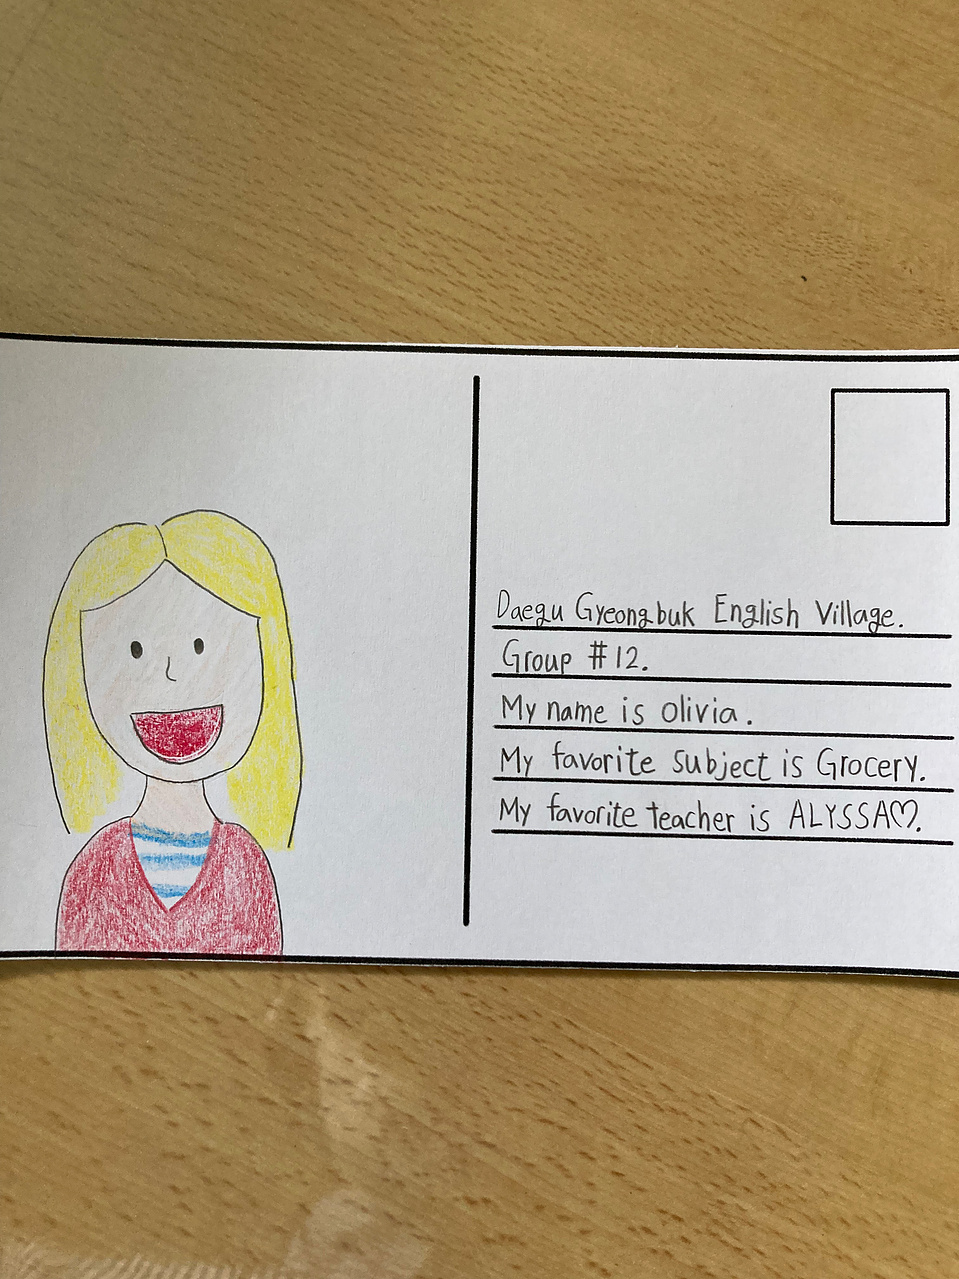 Daegu Gyeongbuk English Village.
Group #12.
My name is olivia.
My favorite subject is Grocery.
My favorite teacher is ALYSSA♡.